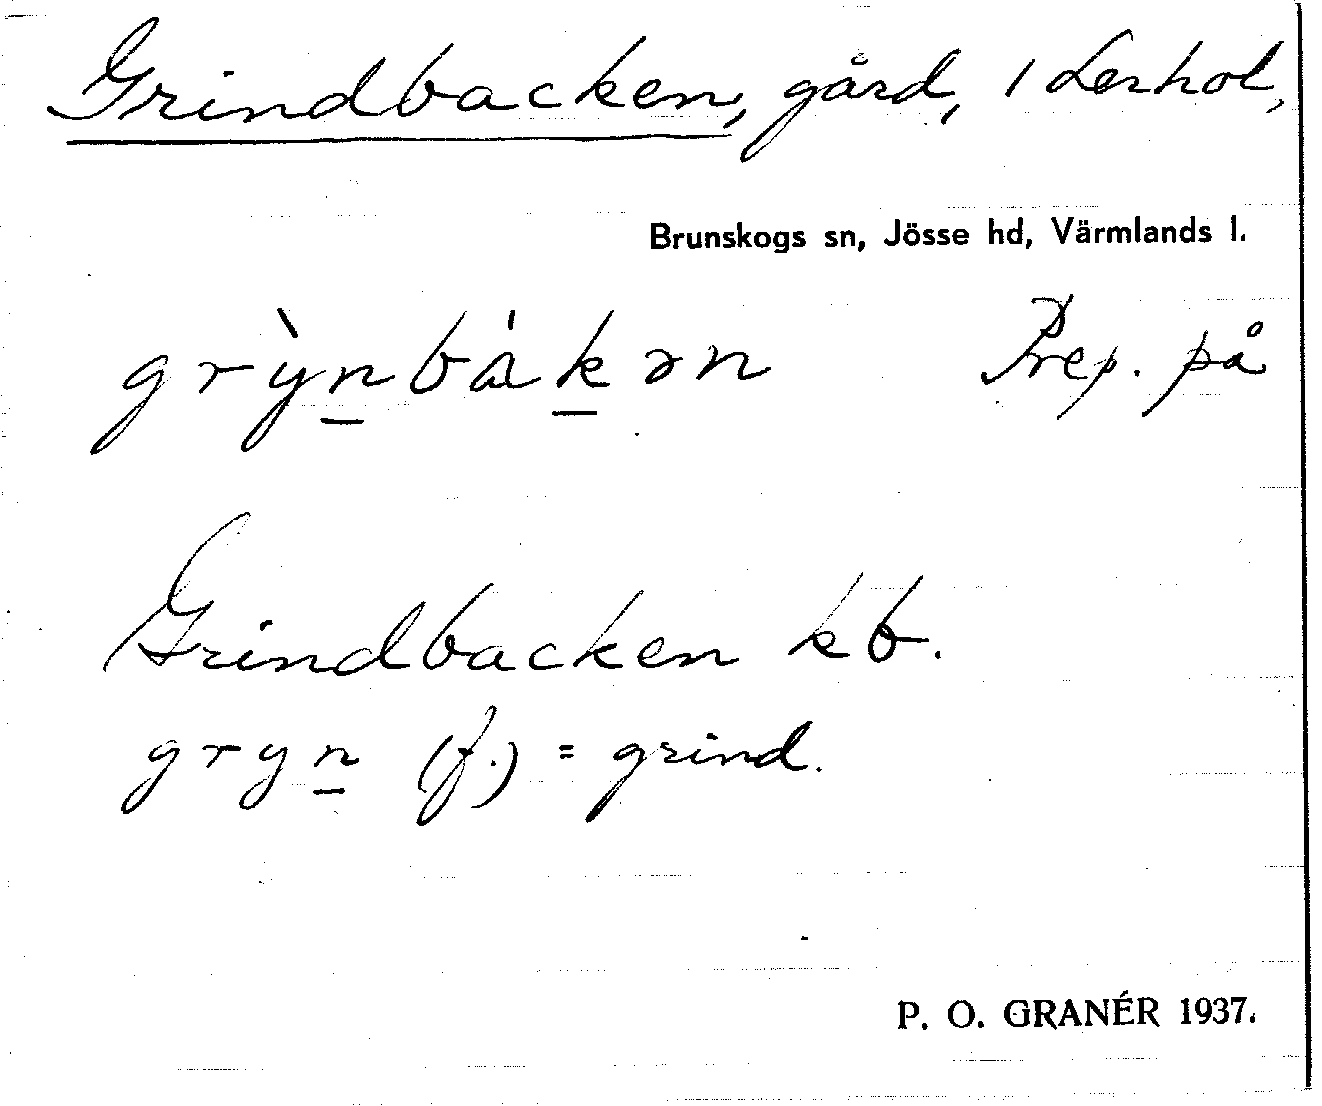 Grindbacken, gård, 1 Lerhol,
Brunskogs sn, Jösse hd, Värmlands l.
grỳn̲bák̲ən Prep. på
Grindbacken kb.
gryn̲ (f.) = grind.
P. O. GRANÉR 1937.